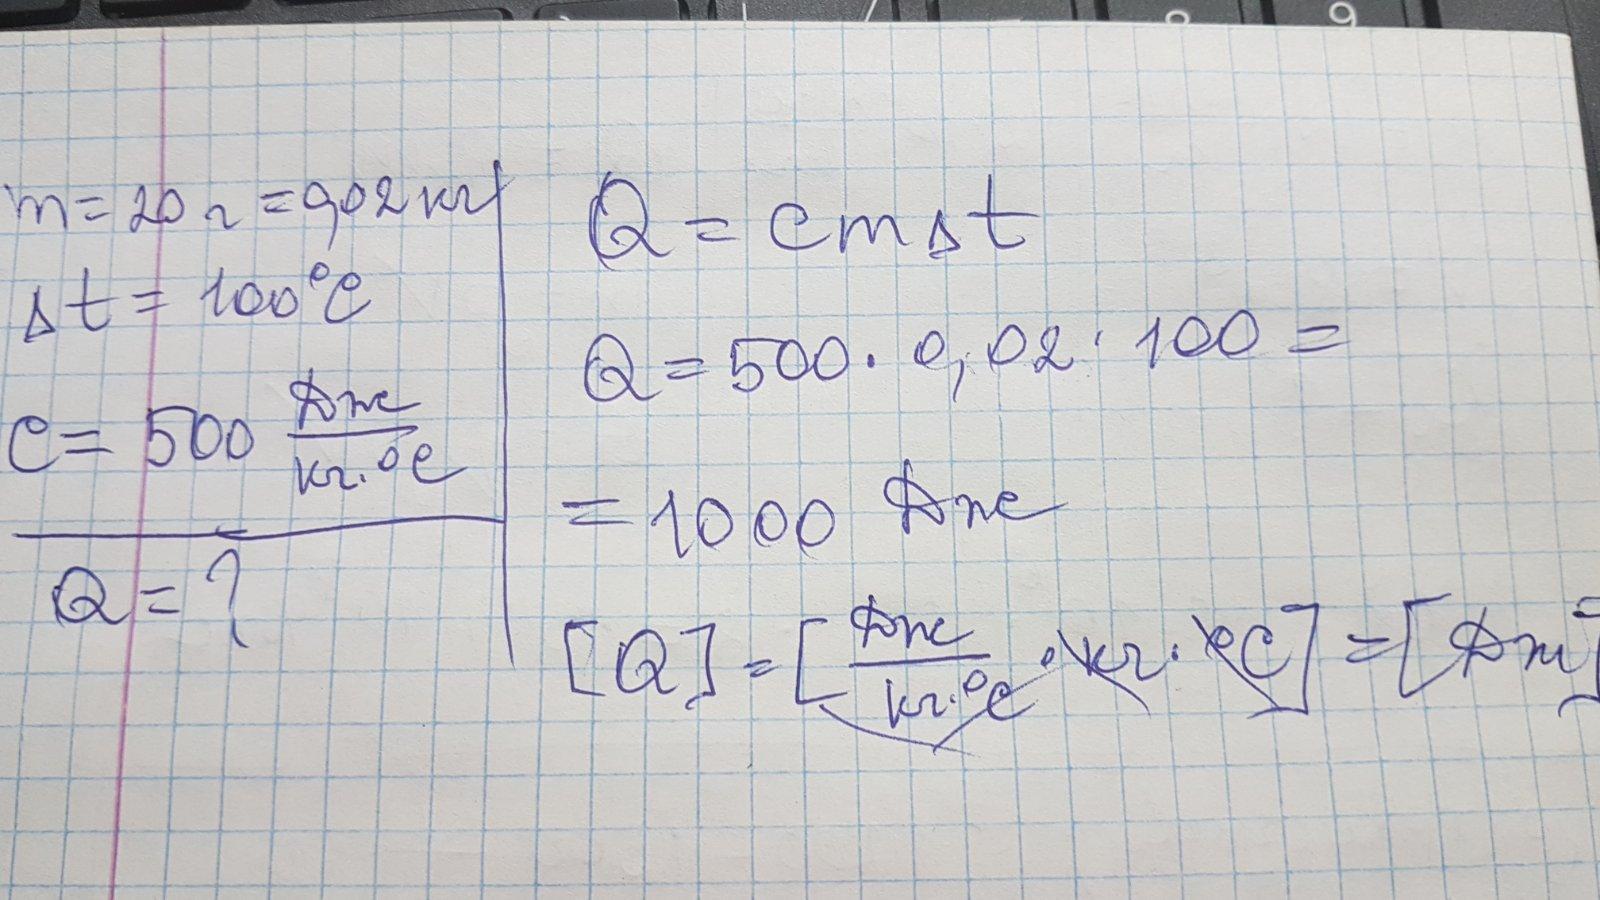 m = 20 г = 0,02 кг
Δt = 100°C
c = 500 Дж/кг·°C
Q = ?
Q = cmΔt
Q = 500 · 0,02 · 100 =
= 1000 Дж
[Q] = [Дж/кг·°C · кг · °C] = [Дж]
9